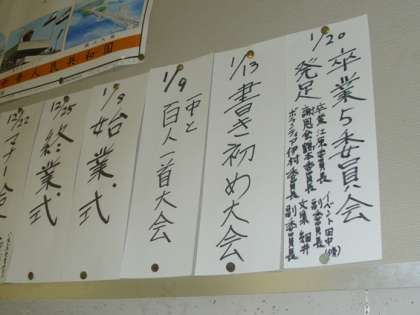 1/20
卒業5委員会
発足
卒業 江原委員長 副委員長
謝恩会 鶴本委員長
ボランティア 伊村委員長 副委員長
イベント 田中
文集 細井
1/13
書き初め大会
1/9
一中と
百人一首大会
1/8
始業式
12/25
終業式
12/22
マナー
華人民共和国